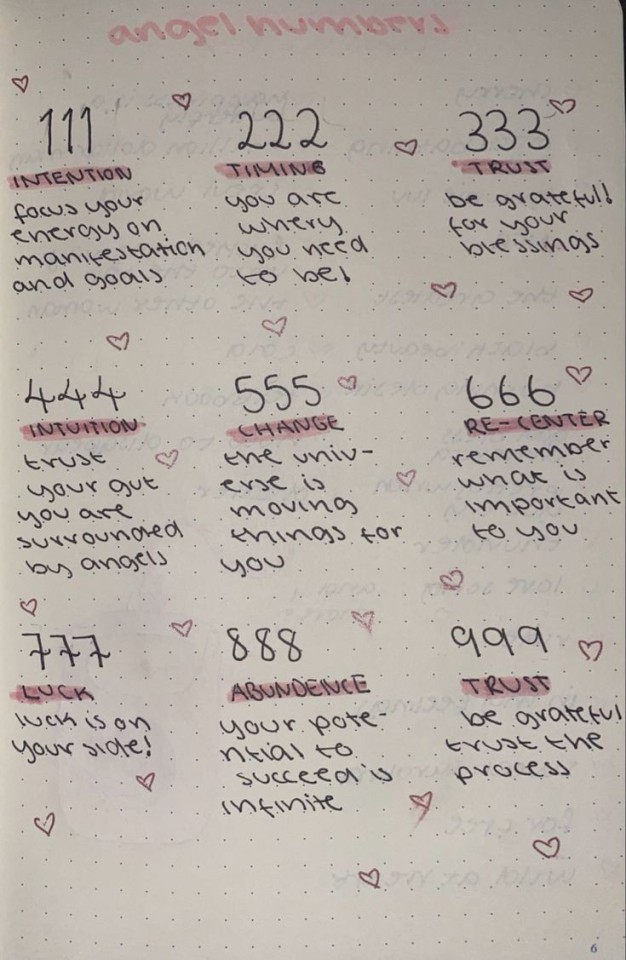 angel numbers
111
INTENTION
focus your
energy on
manifestation
and goals
222
TIMING
you are
whery
you need
to be!
333
TRUST
be grateful!
for your
blessings
444
INTUITION
trust
your gut
you are
surrounded
by angels
555
CHANGE
the univ-
erse is
moving
things for
you
666
RE-CENTER
remember
what is
important
to you
777
LUCK
luck is on
your side!
888
ABUNDENCE
your pote-
ntial to
succeed is
infinite
999
TRUST
be grateful
trust the
process
6